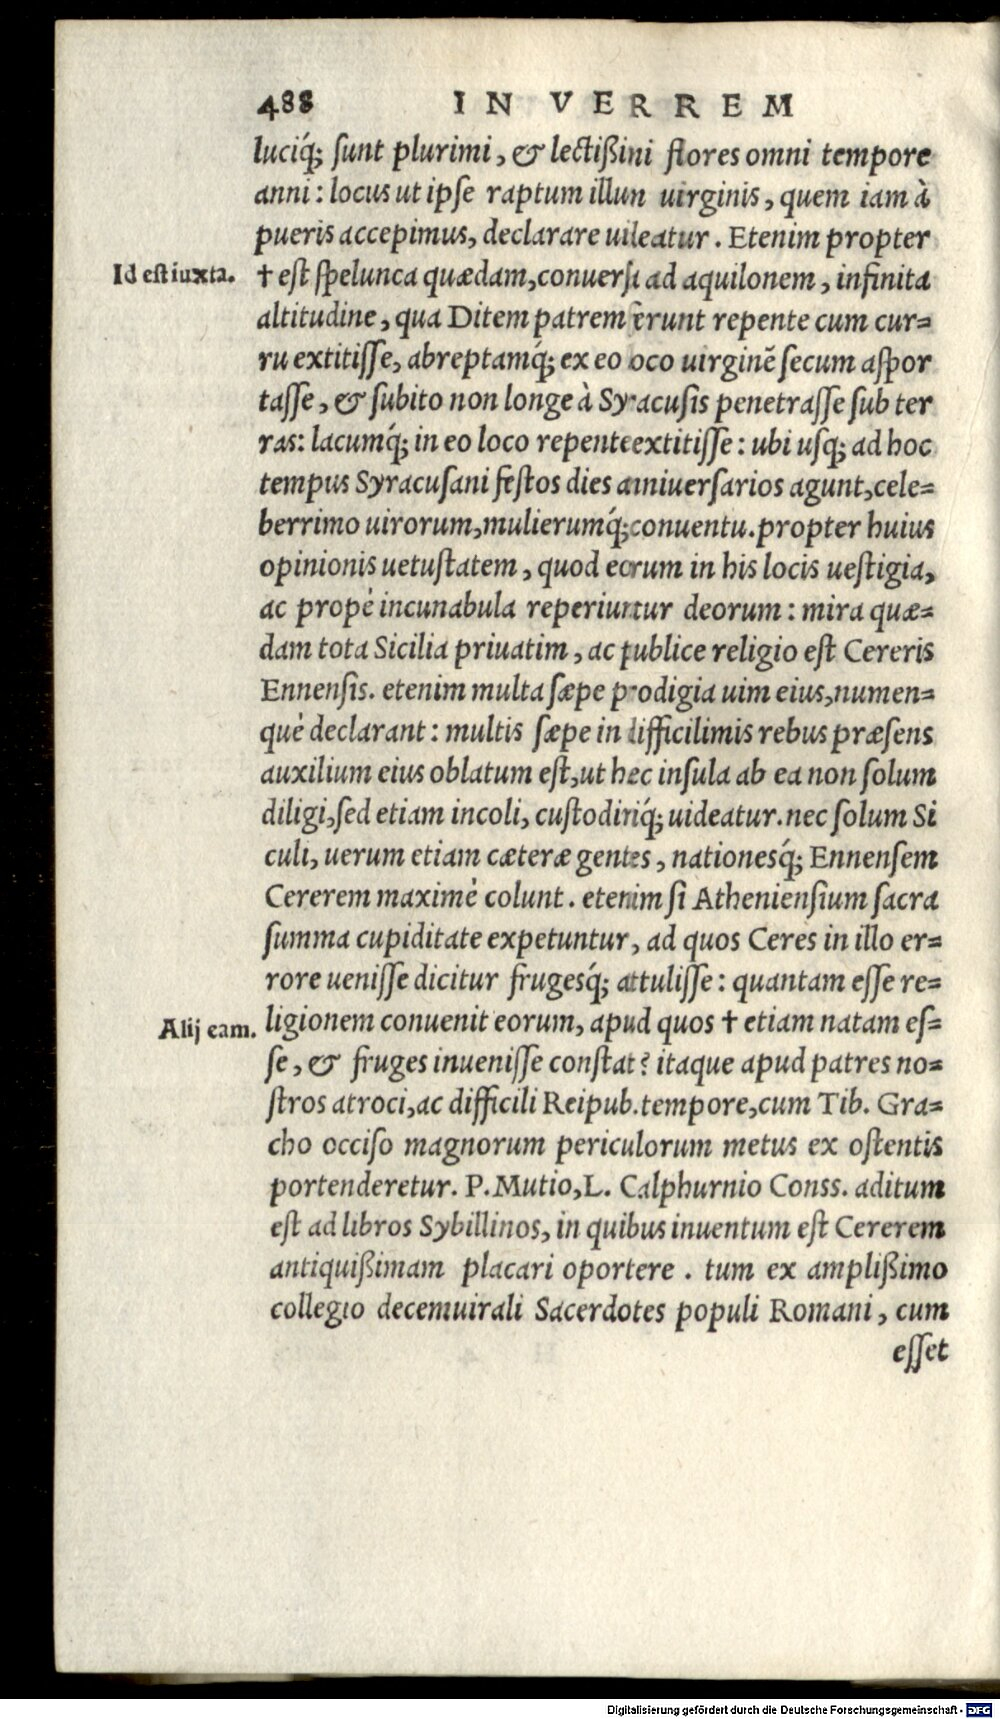 488 IN VERREM
luciq́; sunt plurimi, & lectißini flores omni tempore
anni: locus ut ipse raptum illun uirginis, quem iam à
pueris accepimus, declarare uileatur. Etenim propter
Id est iuxta.
† est spelunca quædam, conuersa ad aquilonem, infinita
altitudine, qua Ditem patrem ferunt repente cum cur=
ru extitisse, abreptamq́; ex eo loco uirginẽ secum aspor
tasse, & subito non longe à Syracusis penetrasse sub ter
ras: lacumq́; in eo loco repente extitisse: ubi usq; ad hoc
tempus Syracusani festos dies anniuersarios agunt, cele=
berrimo uirorum, mulierumq́; conuentu. propter huius
opinionis uetustatem, quod eorum in his locis uestigia,
ac propè incunabula reperiuntur deorum: mira quæ=
dam tota Sicilia priuatim, ac publice religio est Cereris
Ennensis. etenim multa sæpe prodigia uim eius, numen=
què declarant: multis sæpe in difficilimis rebus præsens
auxilium eius oblatum est, ut hec insula ab ea non solum
diligi, sed etiam incoli, custodiriq́; uideatur. nec solum Si
culi, uerum etiam cæteræ gentes, nationesq́; Ennensem
Cererem maximè colunt. etenim si Atheniensium sacra
summa cupiditate expetuntur, ad quos Ceres in illo er=
rore uenisse dicitur frugesq́; attulisse: quantam esse re=
Alij eam.
ligionem conuenit eorum, apud quos † etiam natam es=
se, & fruges inuenisse constat? itaque apud patres no=
stros atroci, ac difficili Reipub. tempore, cum Tib. Gra=
cho occiso magnorum periculorum metus ex ostentis
portenderetur. P. Mutio, L. Calphurnio Conss. aditum
est ad libros Sybillinos, in quibus inuentum est Cererem
antiquißimam placari oportere. tum ex amplißimo
collegio decemuirali Sacerdotes populi Romani, cum
esset
Digitalisierung gefördert durch die Deutsche Forschungsgemeinschaft - DFG